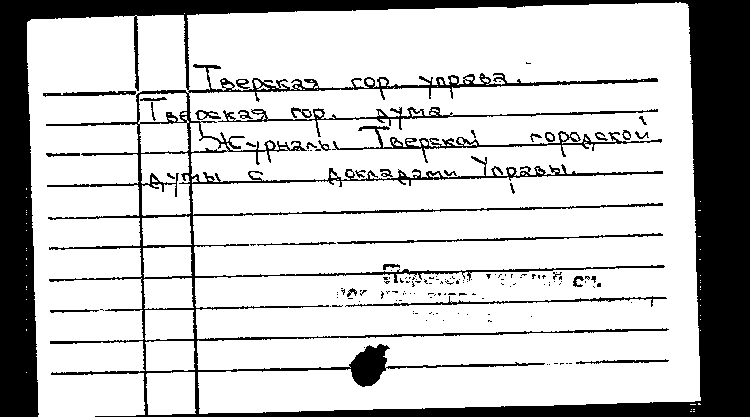 Тверская гор. управа.
Тверская гор. дума.
Журналы Тверской городской
думы с докладами Управы.
см.